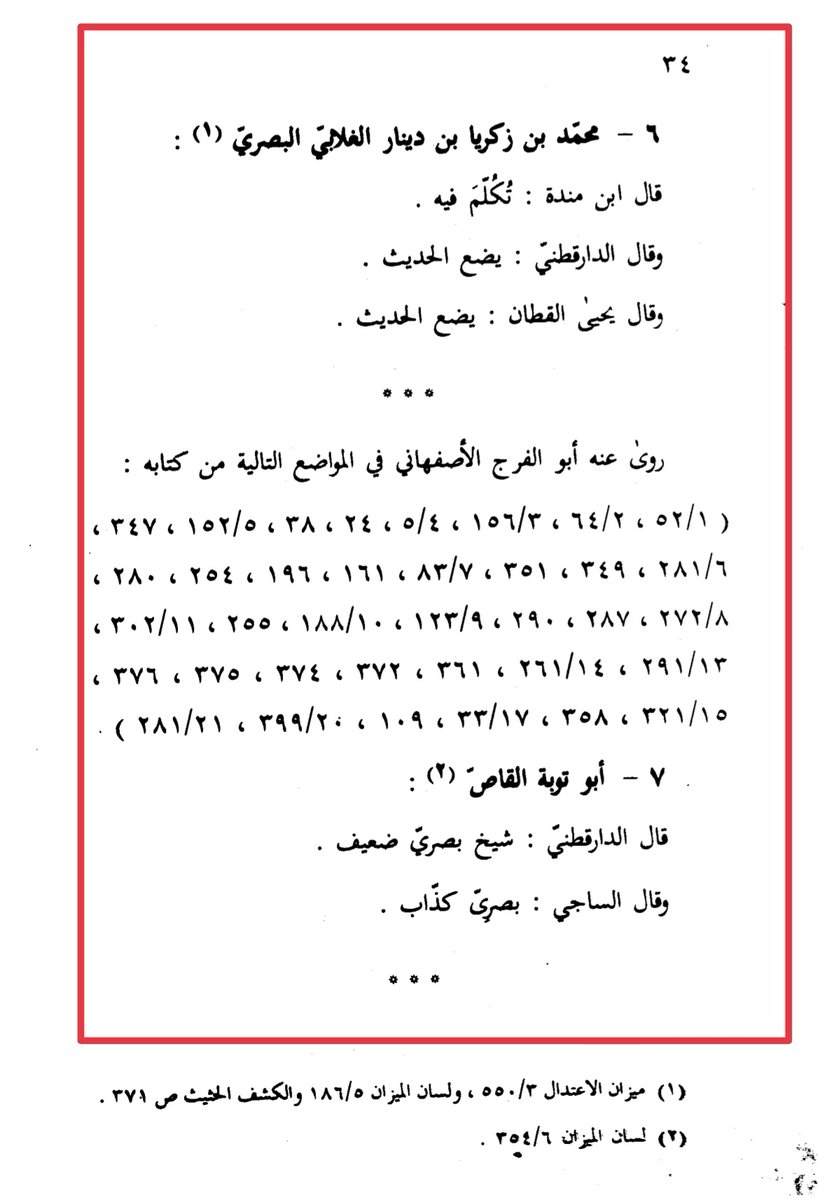 ٣٤
٦ – محمّد بن زكريا بن دينار الغلابيّ البصريّ (١) :
قال ابن مندة : تُكُلّمَ فيه .
وقال الدارقطنيّ : يضع الحديث .
وقال يحيىٰ القطان : يضع الحديث .
* * *
روىٰ عنه أبو الفرج الأصفهاني في المواضع التالية من كتابه :
( ٥٢/١ ، ٦٤/٢ ، ١٥٦/٣ ، ٥/٤ ، ٢٤ ، ٣٨ ، ١٥٢/٥ ، ٣٤٧ ،
٢٨١/٦ ، ٣٤٩ ، ٣٥١ ، ٨٣/٧ ، ١٦١ ، ١٩٦ ، ٢٥٤ ، ٢٨٠ ،
٢٧٢/٨ ، ٢٨٧ ، ٢٩٠ ، ١٢٣/٩ ، ١٨٨/١٠ ، ٢٥٥ ، ٣٠٢/١١ ،
٢٩١/١٣ ، ٢٦١/١٤ ، ٣٦١ ، ٣٧٢ ، ٣٧٤ ، ٣٧٥ ، ٣٧٦ ،
٣٢١/١٥ ، ٣٥٨ ، ٣٣/١٧ ، ١٠٩ ، ٣٩٩/٢٠ ، ٢٨١/٢١ ) .
٧ – أبو توبة القاصّ (٢) :
قال الدارقطنيّ : شيخ بصريّ ضعيف .
وقال الساجي : بصرىّ كذّاب .
* * *
(١) ميزان الاعتدال ٥٥٠/٣ ، ولسان الميزان ١٨٦/٥ والكشف الحثيث ص ٣٧١ .
(٢) لسان الميزان ٣٥٤/٦ .